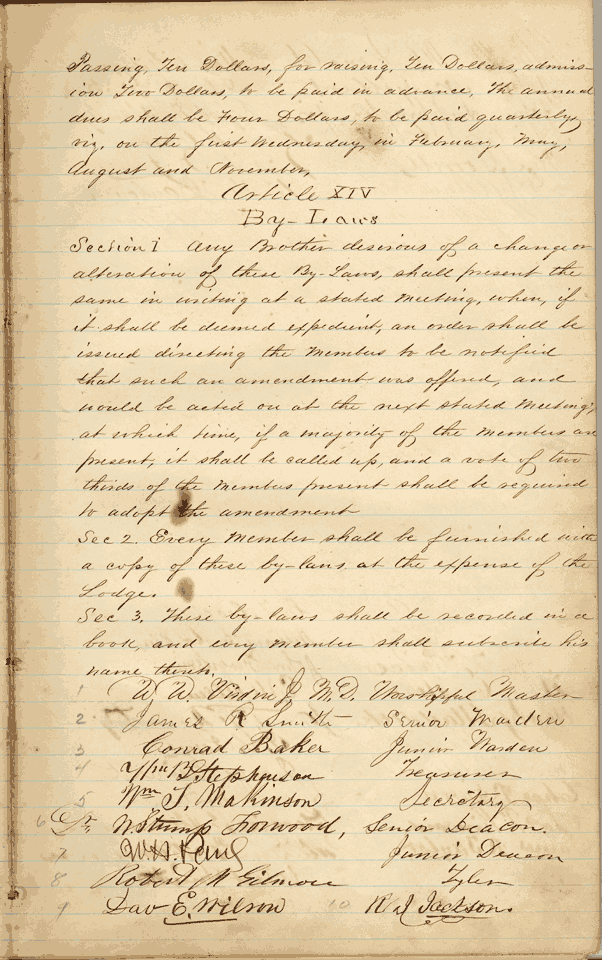 Passing, Ten Dollars, for raising, Ten Dollars, admiss-
ion Two Dollars, to be paid in advance, The annual
dues shall be Four Dollars, to be paid quarterly,
viz. on the first Wednesday, in February, May,
August and November,
Article XIV
By-Laws
Section 1 Any Brother desirous of a change or
alteration of these By-Laws, shall present the
same in writing at a stated Meeting, when, if
it shall be deemed expedient, an order shall be
issued directing the Members to be notified
that such an amendment was offered, and
would be acted on at the next stated Meeting,
at which time, if a majority of the members are
present, it shall be called up, and a vote of two
thirds of the Members present shall be required
to adopt the amendment
Sec 2. Every Member shall be furnished with
a copy of these by-laws at the expense of the
Lodge.
Sec 3. These by-laws shall be recorded in a
book, and every member shall subscribe his
name thereto.
1 W. W. M.D. Worshipful Master
2 James R Smith Senior Warden
3 Conrad Baker Junior Warden
4 Wm B Stephenson Treasurer
5 Wm T. Makinson Secretary
6 Dr. W Stump Forwood, Senior Deacon.
7 W. H. Junior Deacon
8 Robert W Gilmore Tyler
9 Dav E. Wilson 10 R J Jackson.